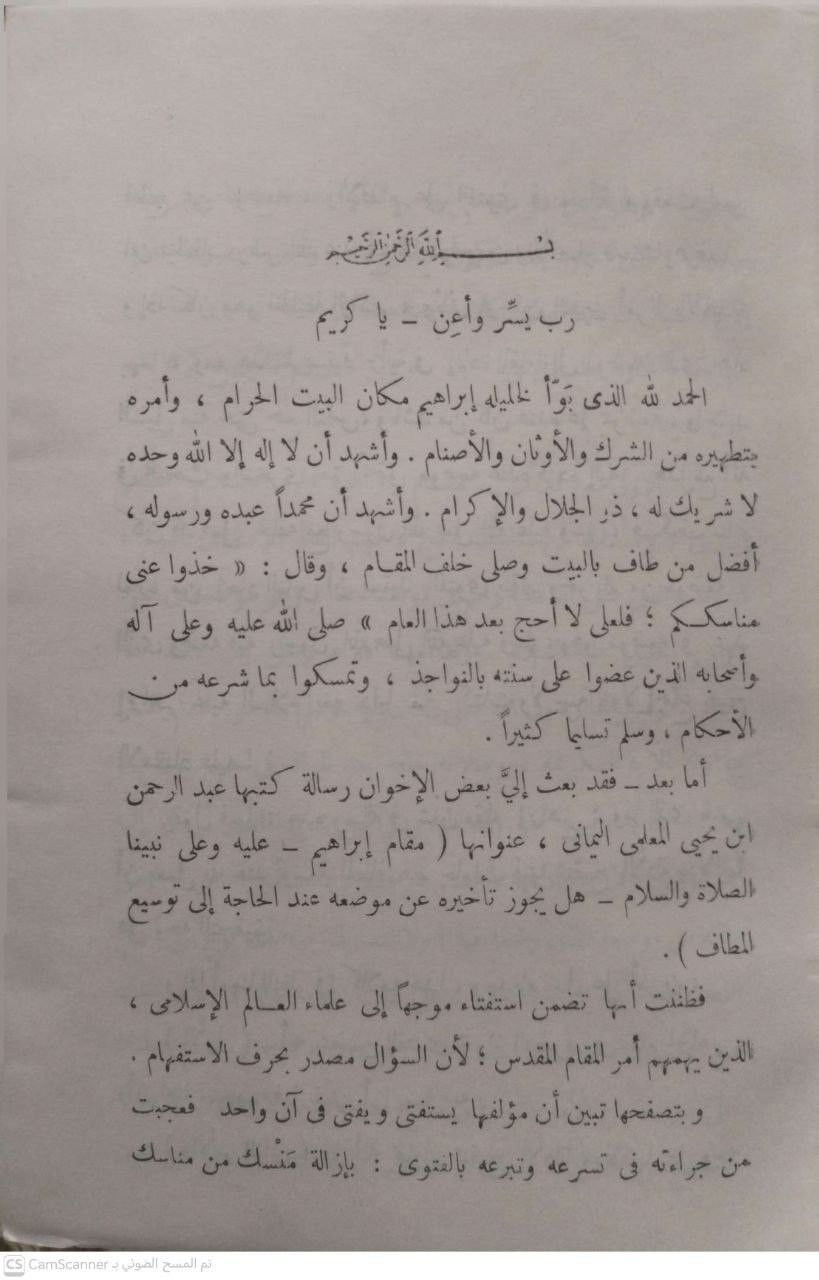 بسم الله الرحمن الرحيم
رب يسِّر وأعِن – يا كريم
الحمد لله الذى بَوّأ لخليله إبراهيم مكان البيت الحرام ، وأمره
بتطهيره من الشرك والأوثان والأصنام . وأشهد أن لا إله إلا الله وحده
لا شريك له ، ذو الجلال والإكرام . وأشهد أن محمداً عبده ورسوله ،
أفضل من طاف بالبيت وصلى خلف المقـام ، وقال : « خذوا عنى
مناسككم ؛ فلعلى لا أحج بعد هذا العام » صلى الله عليه وعلى آله
وأصحابه الذين عضوا على سنته بالنواجذ ، وتمسكوا بما شرعه من
الأحكام ، وسلم تسليما كثيراً .
أما بعد – فقد بعث إليَّ بعض الإخوان رسالة كتبها عبد الرحمن
ابن يحيى المعلمى اليمانى ، عنوانها ( مقام إبراهيم – عليه وعلى نبينا
الصلاة والسلام – هل يجوز تأخيره عن موضعه عند الحاجة إلى توسيع
المطاف ) .
فظننت أنها تضمن استفتاء موجهاً إلى علماء العـالم الإسلامى ،
الذين يهمهم أمر المقام المقدس ؛ لأن السؤال مصدر بحرف الاستفهام .
وبتصفحها تبين أن مؤلفها يستفتى ويفتى فى آن واحد فعجبت
من جراءته فى تسرعه وتبرعه بالفتوى : بإزالة مَنْسك من مناسك
CS CamScanner تم المسح الضوئي بـ